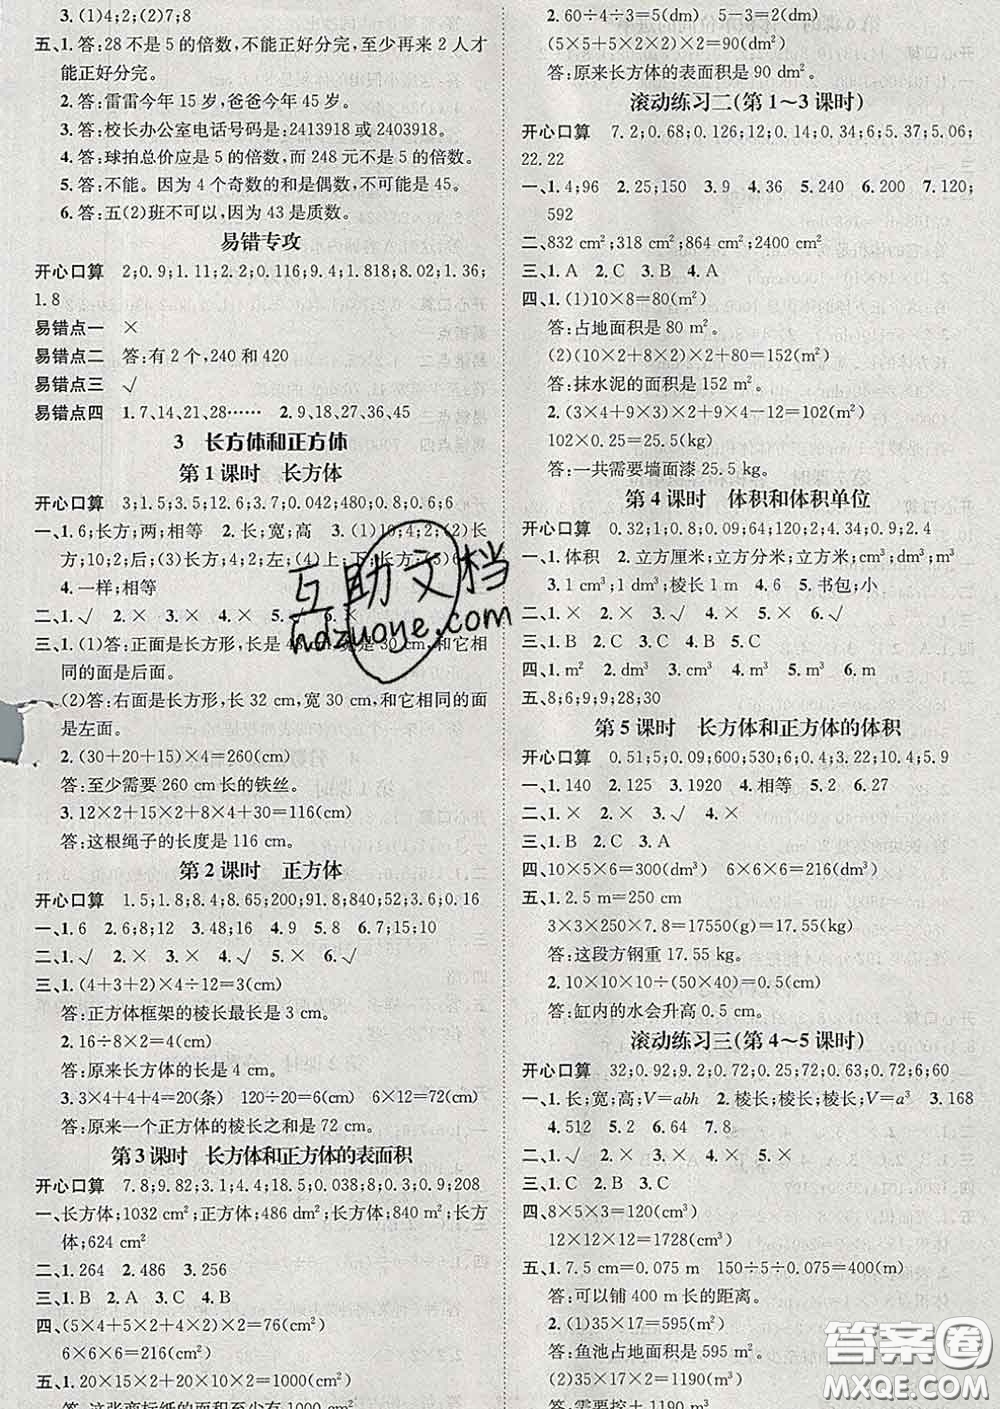 3.(1)4;2;(2)7;8
五、1.答:28不是5的倍数,不能正好分完,至少再来2人才
能正好分完。
2.答:雷雷今年15岁,爸爸今年45岁。
3.答:校长办公室电话号码是:2413918或2403918。
4.答:球拍总价应是5的倍数,而248元不是5的倍数。
5.答:不能。因为4个奇数的和是偶数,不可能是质数。
6.答:五(2)班不可以,因为43是质数。
易错专攻
开心口算 2;0.9;1.11;2.2;0.116;9.4;1.818;8.02;1.36;
1.8
易错点一 ×
易错点二 答:有2个,240和420
易错点三 √
易错点四 1.7,14,21,28…… 2.9,18,27,36,45
3 长方体和正方体
第1课时 长方体
开心口算 3;1.5;3.5;12.6;3.7;0.042;480;0.8;0.6;6
一、1.6;长方;两;相等 2.长;宽;高 3.(1)10;4;2;(2)长
方;10;2;后;(3)长方;4;2;左;(4)上;下;长方;(5)6
4.一样;相等
二、1.√ 2.× 3.√ 4.× 5.× 6.×
三、1.(1)答:正面是长方形,长是48 cm,宽是30 cm,和它相
同的面是后面。
(2)答:右面是长方形,长32 cm,宽30 cm,和它相同的面
是左面。
2.(30+20+15)×4=260(cm)
答:至少需要260 cm长的铁丝。
3.12×2+15×2+8×4+30=116(cm)
答:这根绳子的长度是116 cm。
第2课时 正方体
开心口算 1.5;1.8;8.4;8.65;200;91.8;840;52;3.6;0.16
一、1.6 2.6;8;12 3.48;16 4.9 5.8 6.7;15;10
二、1.√ 2.× 3.× 4.√ 5.× 6.√
三、1.(4+3+2)×4÷12=3(cm)
答:正方体框架的棱长最长是3 cm。
2.16÷8×2=4(cm)
答:这个正方体的棱长是4 cm。
3.3×4+4+4=20(条) 120÷20=6(cm) 6×12=72(cm)
答:原来一个正方体的棱长之和是72 cm。
第3课时 长方体和正方体的表面积
开心口算 7.8;9.82;3.1;4.4;18.5;0.038;8;0.3;0.9;208
一、长方体;1032 cm²;正方体;486 dm²;长方体;840 m²;长方
体;624 cm²
二、1.264 2.486 3.256
三、1.B 2.A 3.C 4.B
四、(5×4+5×2+4×2)×2=76(cm²)
6×6×6=216(cm²)
五、1.20×15×2+20×10×2=1000(cm²)
答:这张商标纸的面积至少有1000 cm²。
2.60÷4÷3=5(dm) 5-3=2(dm)
(5×5+5×2+5×2)×2=90(dm²)
答:原来长方体的表面积是90 dm²。
滚动练习二(第1~3课时)
开心口算 7.2;0.68;0.126;12;0.14;0.34;6;5.37;5.06;
22.22
一、1.4;96 2.25;150 3.9 4.36 5.240 6.200 7.120;
592
二、832 cm²;318 cm²;864 cm²;2400 cm²
三、1.A 2.C 3.B 4.A
四、1.(1)10×8=80(m²)
答:占地面积是80 m²。
(2)(10×2+8×2)×2+80=152(m²)
答:抹水泥的面积是152 m²。
2.(3×4+9×3)×2+9×4-12=102(m²)
102×0.25=25.5(kg)
答:一共需要墙面漆25.5 kg。
第4课时 体积和体积单位
开心口算 0.32;1;0.8;0.09;64;120;2;4.34;0.9;2.4
一、1.体积 2.立方厘米;立方分米;立方米;cm³;dm³;m³
3.1 cm³;1 dm³;棱长1 m 4.6 5.书包;小
二、1.× 2.× 3.× 4.× 5.× 6.√
三、1.B 2.C 3.B 4.C
四、1.m² 2.dm³ 3.m³ 4.m² 5.m³ 6.m
五、8;6;9;9;28;30
第5课时 长方体和正方体的体积
开心口算 0.51;5;0.09;600;530;6;4;0.22;10.4;5.9
一、1.140 2.125 3.1920 4.相等 5.2 6.27
二、1.× 2.× 3.√ 4.×
三、1.C 2.C 3.A
四、10×5×6=300(dm³) 6×6×6=216(dm³)
五、1.2.5 m=250 cm
3×3×250×7.8=17550(g)=17.55(kg)
答:这段方钢重17.55 kg。
2.10×10×5÷(50×20)=0.5(cm)
答:缸内的水会升高0.5 cm。
滚动练习三(第4~5课时)
开心口算 32;0.92;0.72;0.25;72;0.63;0.12;6;60
一、1.长;宽;高;V=abh 2.棱长;棱长;棱长;V=a³ 3.168
4.512 5.2 6.64 7.8
二、1.× 2.√ 3.√ 4.× 5.×
三、1.C 2.C 3.A 4.A 5.C
四、8×5×3=120(cm³)
12×12×12=1728(cm³)
五、1.7.5 cm=0.075 m 150÷5÷0.075=400(m)
答:可以铺400 m长的距离。
2.(1)35×17=595(m²)
答:鱼池占地面积是595 m²。
(2)35×17×2=1190(m³)
答:需要挖土1190 m³。
互助文档
hdzuoye.com
答案圈
MXQE.COM